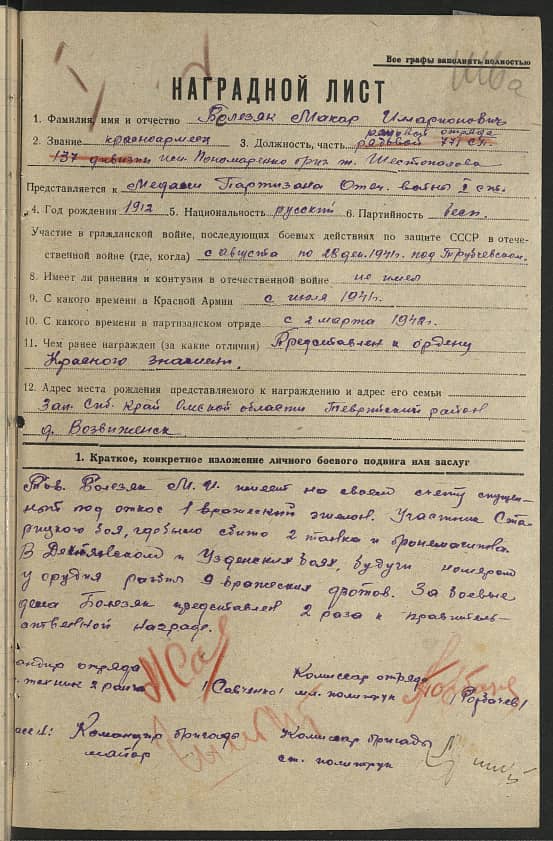 Все графы заполнять полностью
НАГРАДНОЙ ЛИСТ
1. Фамилия, имя и отчество Болезяк Макар Имарионович
2. Звание красноармеец 3. Должность, часть рядовой отряда
рядовой 771 сп.
137 дивизии им. Пономаренко бриг. т. Шестопалова
Представляется к Медали Партизана Отеч. войны I ст.
4. Год рождения 1912 5. Национальность русский 6. Партийность бесп.
Участие в гражданской войне, последующих боевых действиях по защите СССР в отече-
ственной войне (где, когда) с августа по 28 дек. 1941г. под Трубчевском.
8. Имеет ли ранения и контузии в отечественной войне не имел
9. С какого времени в Красной Армии с июля 1941г.
10. С какого времени в партизанском отряде с 2 марта 1942г.
11. Чем ранее награжден (за какие отличия) Представлен к ордену
Красного знамени.
12. Адрес места рождения представляемого к награждению и адрес его семьи
Зап. Сиб. Край Омской области Тевризский район
д. Возвиженск
1. Краткое, конкретное изложение личного боевого подвига или заслуг
Тов. Болезяк М. И. имеет на своем счету спущен-
ный под откос 1 вражеский эшелон. Участник Ста-
рицкого боя, где было сбито 2 танка и бронемашина.
В и Узденских боях, будучи номером
у орудия разбил 9 вражеских дзотов. За боевые
дела Болезяк представлен 2 раза к правитель-
ственной награде.
андир отряда
техник 2 ранга /Савченко/
Комиссар отряда
мл. политрук /Горбачев/
Командир бригады
майор
Комиссар бригады
ст. политрук